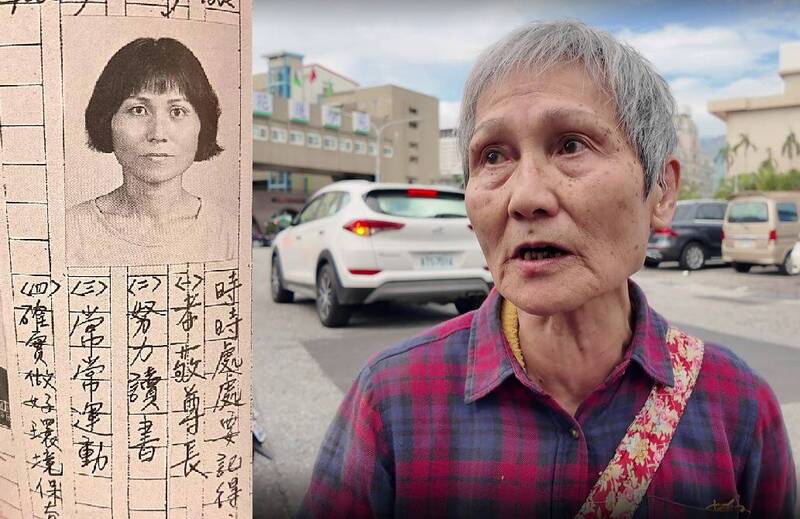 時時處處要記得
(一)孝敬尊長
(二)努力讀書
(三)常常運動
(四)確實做好環境保